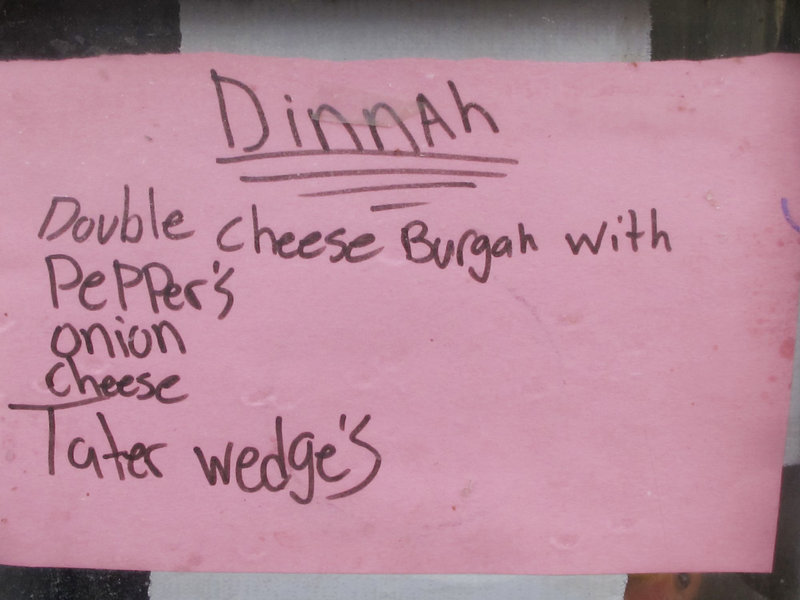 DinnAh
Double cheese Burgah with
PePPer's
onion
cheese
Tater wedge's